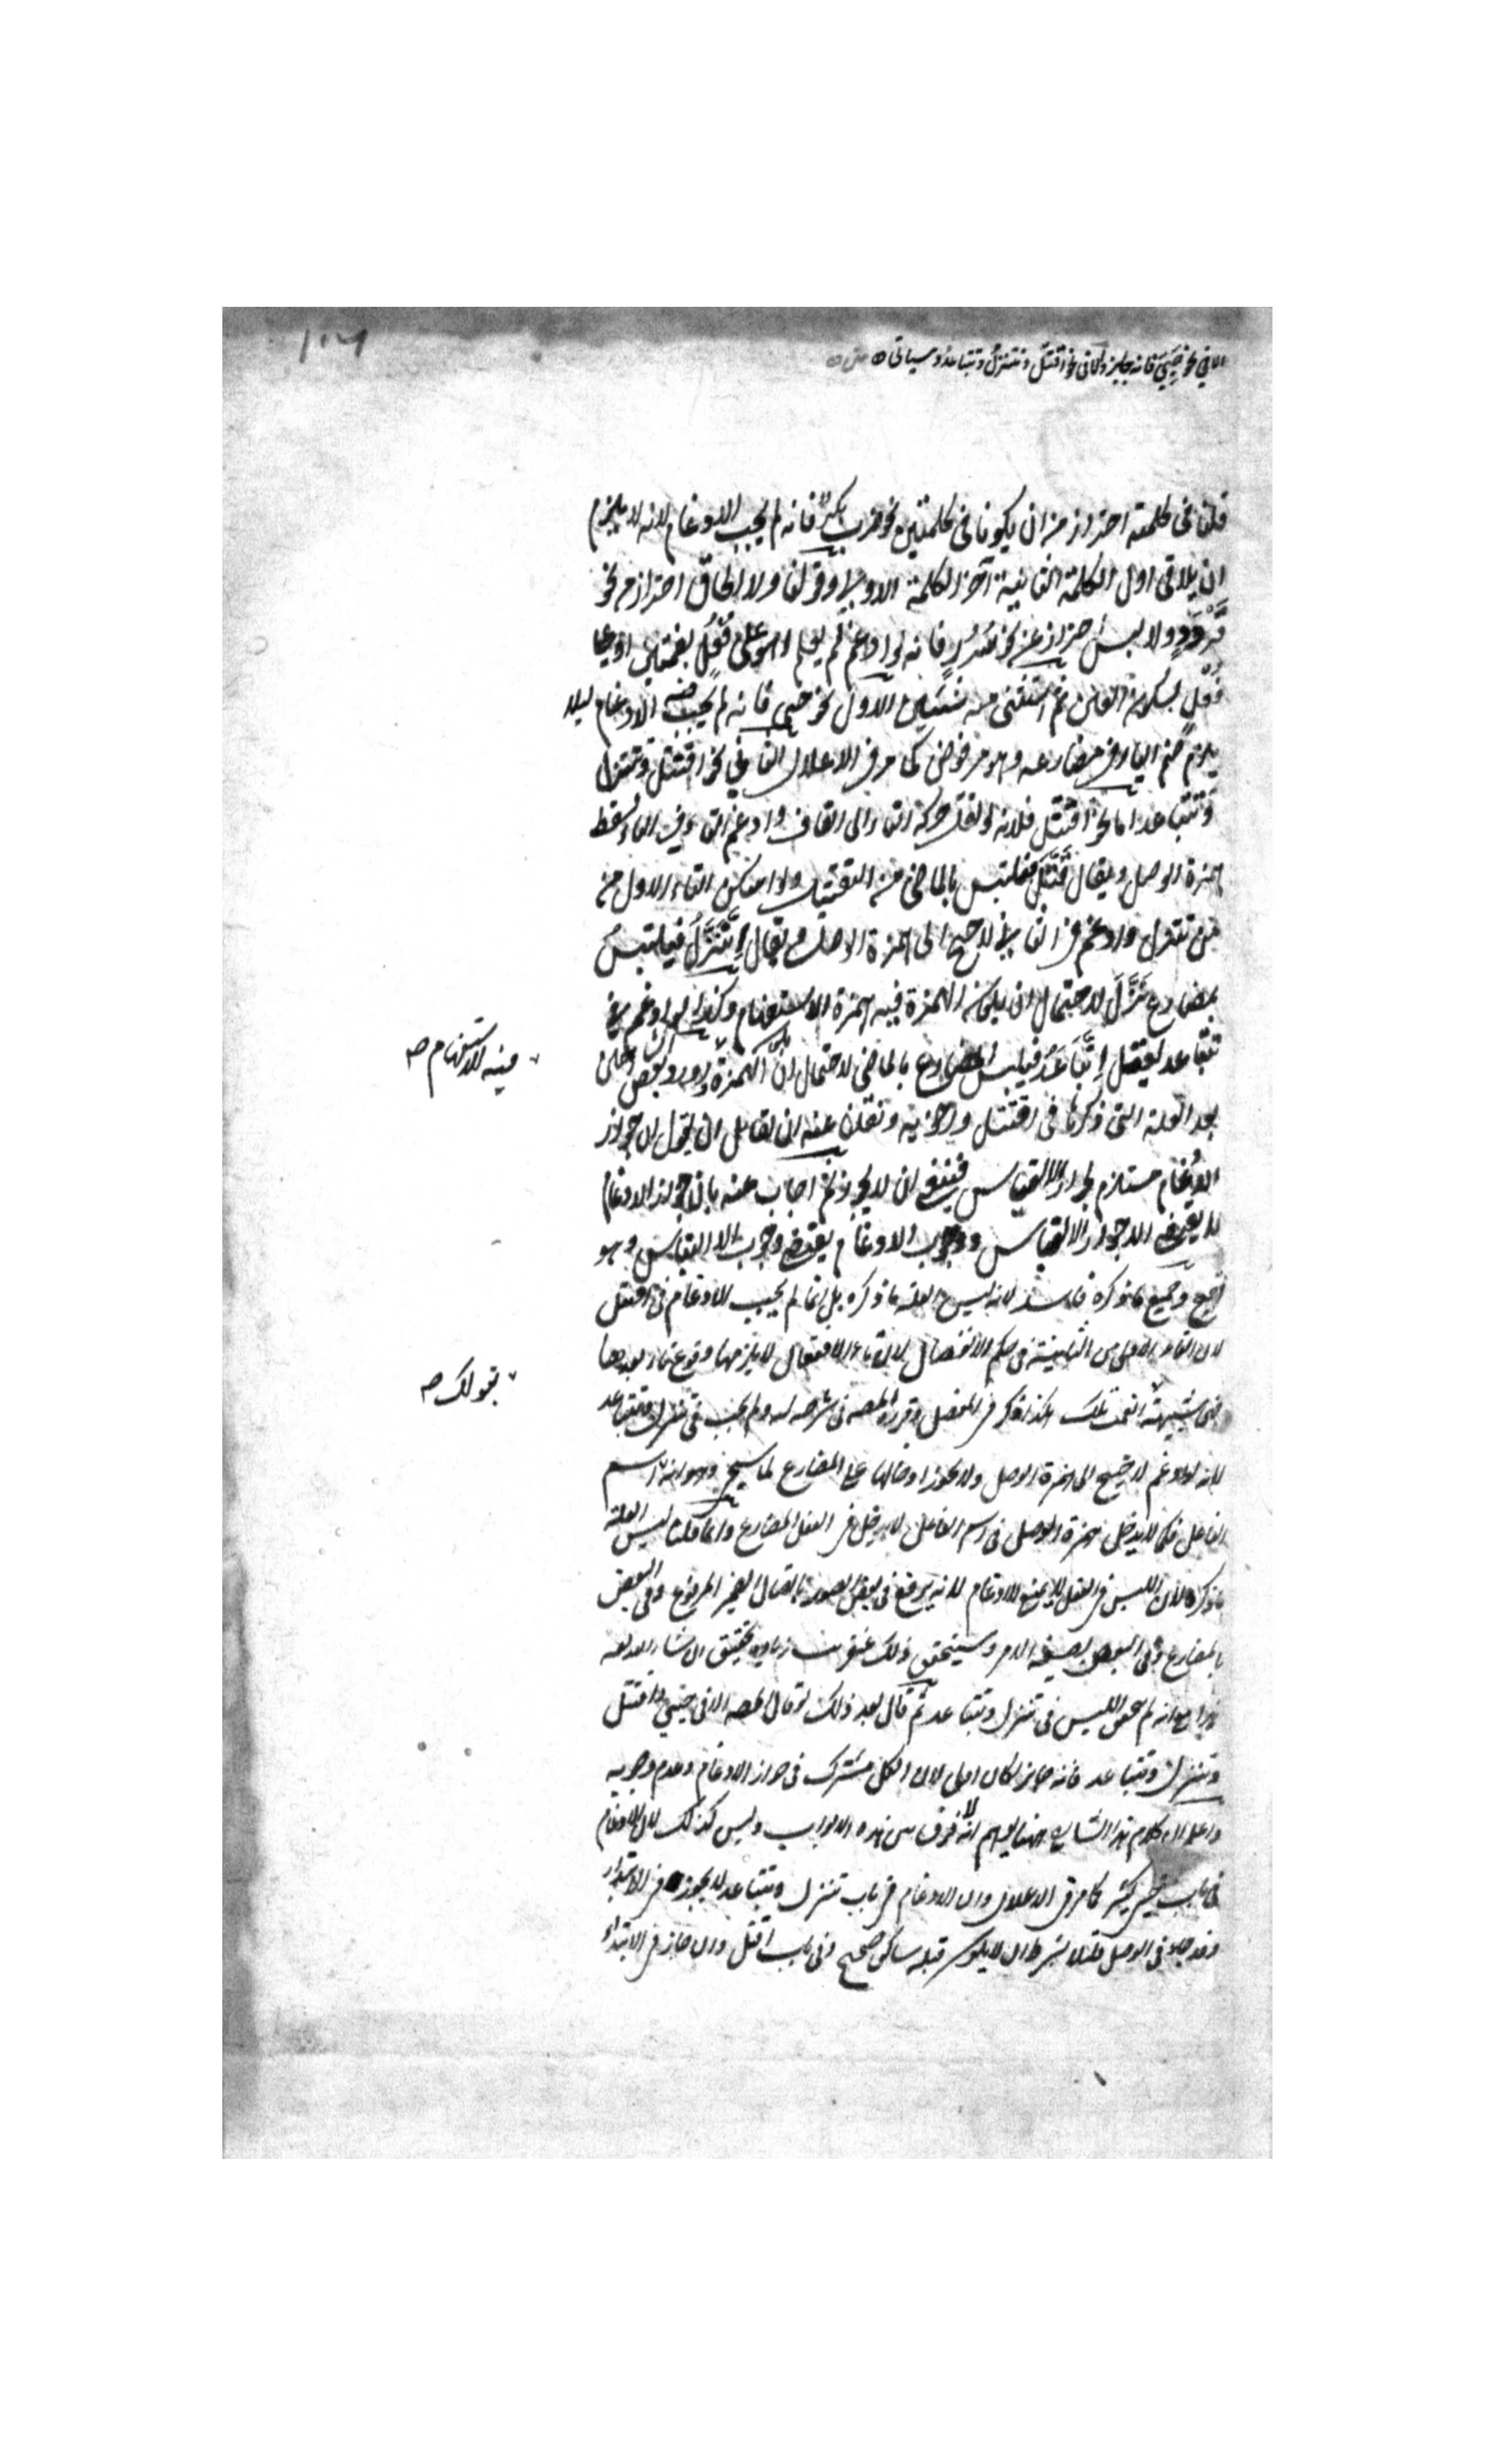 ١٠٦
الا في نحو حيي فانه جايز والا في نحو اقتتل وتتنزل وتتباعد وسياتي
قلنا في كلمة احتراز من ان يكونا في كلمتين نحو ضرب بكر فانه لم يجب الادغام لانه لا يلزم
ان يلاقي اول الكلمة الثانية آخر الكلمة الاولى وقولنا ولا الحاق احتراز من نحو
قردد ولا لبس احتراز عن نحو سرر فانه لو ادغم لم يعلم اهو على فعل بضمتين او على
فعل بسكون العين ثم استثنى منه شيئين الاول نحو حيي فانه لم يجب فيه الادغام ليلا
يلزم ضم الياء في مضارعه وهو مرفوض كما مر في الاعلال الثاني نحو اقتتل وتتنزل
وتتباعد اما نحو اقتتل فلانه لو نقل حركة التاء الى القاف وادغم التاء في التاء يسقط
همزة الوصل ويقال قتل فيلتبس بالماضي من التقتيل ولو اسكن التاء الاولى من
من تتنزل وادغم في الثاني لاحتيج الى همزة الوصل ويقال اتنزل فيلتبس
بمضارع نزل لاحتمال ان يكون الهمزة فيه همزة الاستفهام وكذا لو ادغم في
تتباعد ليقال اتباعد فيلتبس المضارع بالماضي لاحتمال ان الهمزة
فيه للاستفهام صح
بعد العلة التي ذكرناها في اقتتل ونقلنا عنه ان لقائل ان يقول ان جواز
الادغام مستلزم لجواز الالتباس فينبغي ان لا يجوز ثم اجاب عنه بان جواز الادغام
لا يقتضي الا جواز الالتباس ووجوب الادغام يقتضي وجوب الالتباس وهو
قبيح وجميع ما ذكره فاسد لانه ليس العلة ما ذكره بل انما لم يجب الادغام في اقتتل
لان التاء الاولى من الثانية في حكم الانفصال لان تاء الافتعال لا يلزمها وقوع تاء بعدها
فهي شبيهة انعت تلك هكذا ذكر في المفصل وقرره المصه في شرحه له ولم يجب في تتنزل وتتباعد
بقولك صح
لانه لو ادغم لاحتيج الى همزة الوصل ولا يجوز ادخالها على المضارع لما سيجي وهو انه اسم
الفاعل فكما لا يدخل همزة الوصل في اسم الفاعل لا يدخل في الفعل المضارع وانما قلنا ليس العلة
ما ذكره لان اللبس في الفعل لا يمنع الادغام لانه يرتفع في بعض الصور باتصال الضمير المرفوع وفي البعض
بالمضارع وفي البعض بصيغة الامر وسيتحقق ذلك عن قريب زيادة تحقيق ان شاء الله تعالى
هذا مع انه لم يحقق اللبس في تتنزل وتتباعد ثم قال بعد ذلك لو قال المصه الا في حيي واقتتل
وتتنزل وتتباعد فانه جايز لكان اولى لان الكل مشترك في جواز الادغام وعدم وجوبه
واعلم ان كلام هذا الشارح ههنا يوهم انه لا فرق بين هذه الابواب وليس كذلك لان الادغام
في باب حيي كثير كما مر في الاعلال وان الادغام في باب تتنزل وتتباعد لا يجوز في الابتداء
وقد جاء في الوصل قليلا بشرط ان لا يكون قبله ساكن صحيح وفي باب اقتتل وان جاز في الابتداء